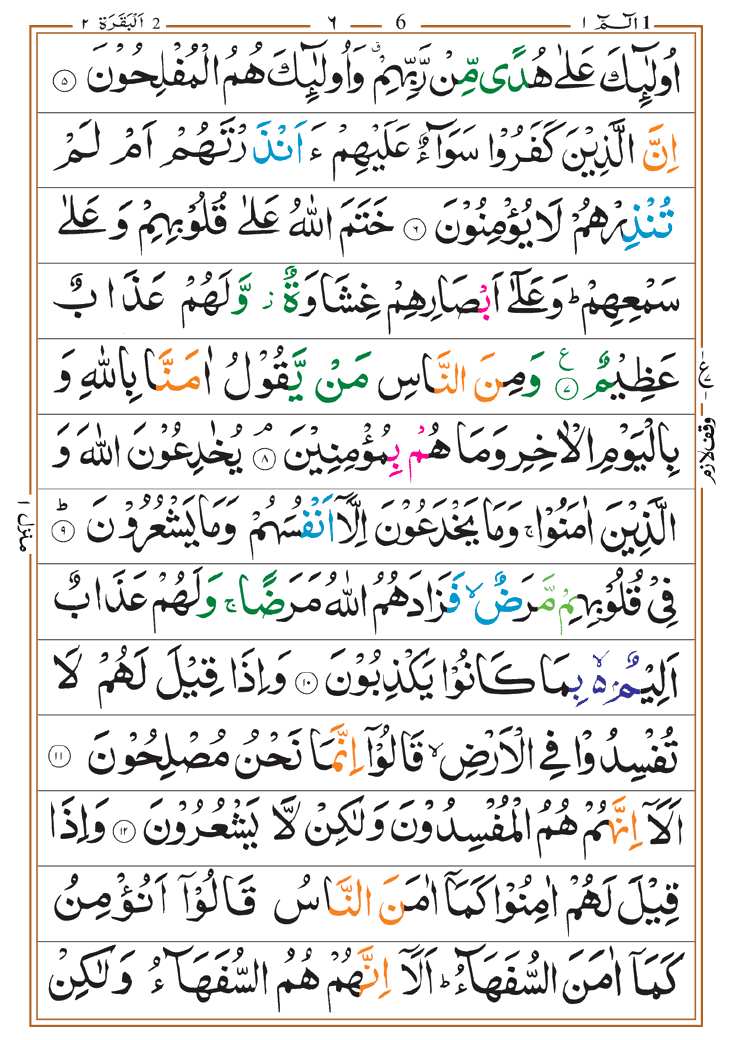 1 الٓمّٓ ۱
6 ٦
2 اَلْبَقَرَة ۲
اُولٰٓئِكَ عَلٰى هُدًى مِّنْ رَّبِّهِمْ ۗ وَاُولٰٓئِكَ هُمُ الْمُفْلِحُوْنَ ۵
اِنَّ الَّذِيْنَ كَفَرُوْا سَوَآءٌ عَلَيْهِمْ ءَاَنْذَرْتَهُمْ اَمْ لَمْ
تُنْذِرْهُمْ لَا يُؤْمِنُوْنَ ٦ خَتَمَ اللّٰهُ عَلٰى قُلُوْبِهِمْ وَ عَلٰى
سَمْعِهِمْ ؕ وَ عَلٰٓى اَبْصَارِهِمْ غِشَاوَةٌ ز وَّلَهُمْ عَذَابٌ
عَظِيْمٌ ۷ ع وَمِنَ النَّاسِ مَنْ يَّقُوْلُ اٰمَنَّا بِاللّٰهِ وَ
بِالْيَوْمِ الْاٰخِرِ وَمَا هُمْ بِمُؤْمِنِيْنَ ۘ ۸ يُخٰدِعُوْنَ اللّٰهَ وَ
الَّذِيْنَ اٰمَنُوْا ۚ وَمَا يَخْدَعُوْنَ اِلَّآ اَنْفُسَهُمْ وَمَا يَشْعُرُوْنَ ؕ ۹
فِيْ قُلُوْبِهِمْ مَّرَضٌ ۙ فَزَادَهُمُ اللّٰهُ مَرَضًا ۚ وَلَهُمْ عَذَابٌ
اَلِيْمٌۢ ۙ۵ بِمَا كَانُوْا يَكْذِبُوْنَ ۱۰ وَاِذَا قِيْلَ لَهُمْ لَا
تُفْسِدُوْا فِي الْاَرْضِ ۙ قَالُوْٓا اِنَّمَا نَحْنُ مُصْلِحُوْنَ ۱۱
اَلَآ اِنَّهُمْ هُمُ الْمُفْسِدُوْنَ وَلٰكِنْ لَّا يَشْعُرُوْنَ ۱۲ وَاِذَا
قِيْلَ لَهُمْ اٰمِنُوْا كَمَآ اٰمَنَ النَّاسُ قَالُوْٓا اَنُؤْمِنُ
كَمَآ اٰمَنَ السُّفَهَآءُ ؕ اَلَآ اِنَّهُمْ هُمُ السُّفَهَآءُ وَلٰكِنْ
وقف لازم
منزل ۱